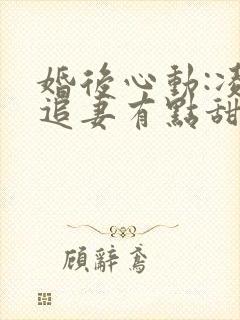 婚後心動:凌
追妻有點甜
顧辭鳶